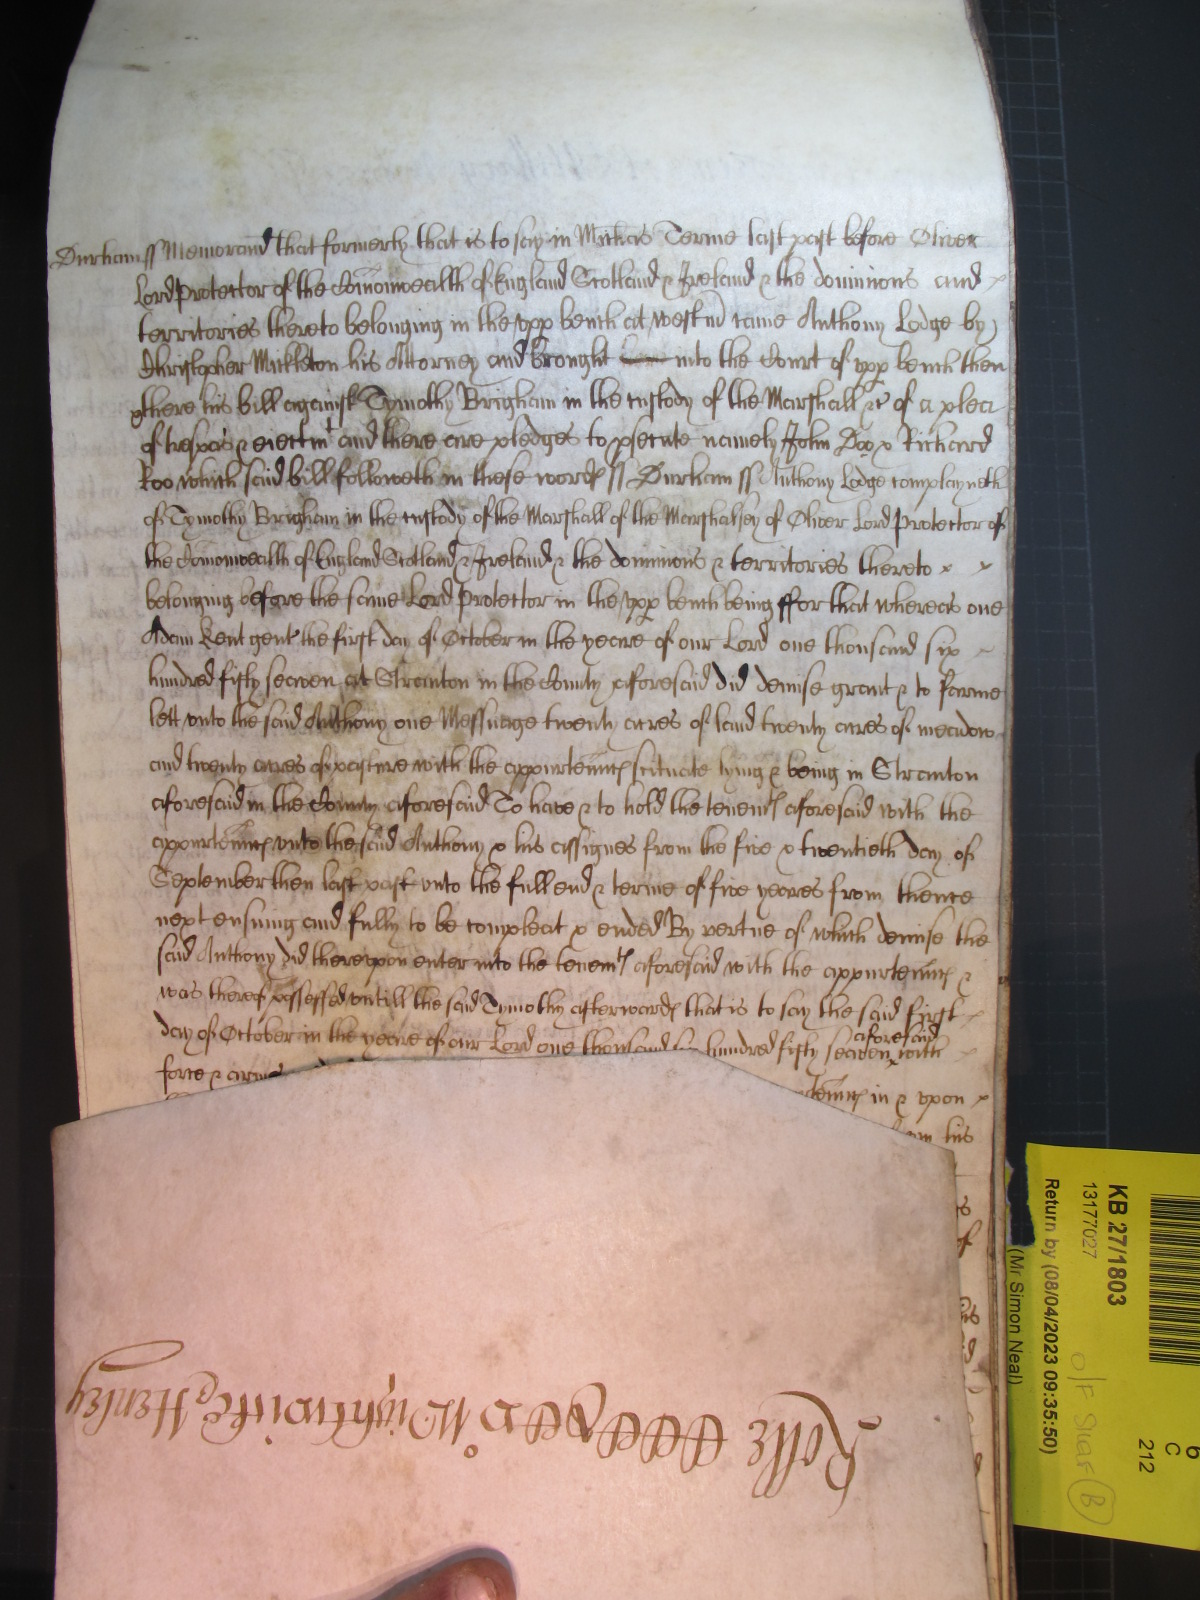 Durham ss Memorand that formerly that is to say in Mich'is Terme last past before Oliver
Lord Protector of the Com̄onwealth of England Scotland & Ireland & the dominions and
territories thereto belonging in the upp bench at westm̄ came Anthony Lodge by
Christopher Mickleton his Attorney and brought into the Court of upp bench then
& there his bill against Tymothy Brigham in the custody of the Marshall &c of a plea
of trespas & eiectm̄t and there are pledges to psecute namely John Doo & Richard
Roo which said bill followeth in these words ss Durham ss Anthony Lodge complayneth
of Tymothy Brigham in the custody of the Marshall of the Marshalsey of Oliver Lord Protector of
the Com̄onwealth of England Scotland & Ireland & the dominions & territories thereto
belonging before the same Lord Protector in the upp bench being ffor that whereas one
Adam Kent gent the first day of October in the yeare of our Lord one thousand six
hundred fifty seaven at Stranton in the County aforesaid did demise grant & to farme
lett unto the said Anthony one Messuage twenty acres of land twenty acres of meadow
and twenty acres of pasture with the appurten̄nc scituate lying & being in Stranton
aforesaid in the County aforesaid To have & to hold the tenem̄ts aforesaid with the
appurten̄nc unto the said Anthony & his assignes from the five & twentieth day of
September then last past unto the full end & terme of five yeares from thence
next ensuing and fully to be compleat & ended By vertue of which demise the
said Anthony did thereupon enter into the tenem̄ts aforesaid with the appurten̄nc &
was thereof possessed untill the said Tymothy afterwards that is to say the said first
day of October in the yeare of our Lord one thousand six hundred fifty seaven aforesaid with
force & armes in & upon
his
Rolle Wightwicke Henley
KB 27/1803
13177027
Return by (08/04/2023 09:35:50)
(Mr Simon Neal)
O/F Shelf B
6
C
212